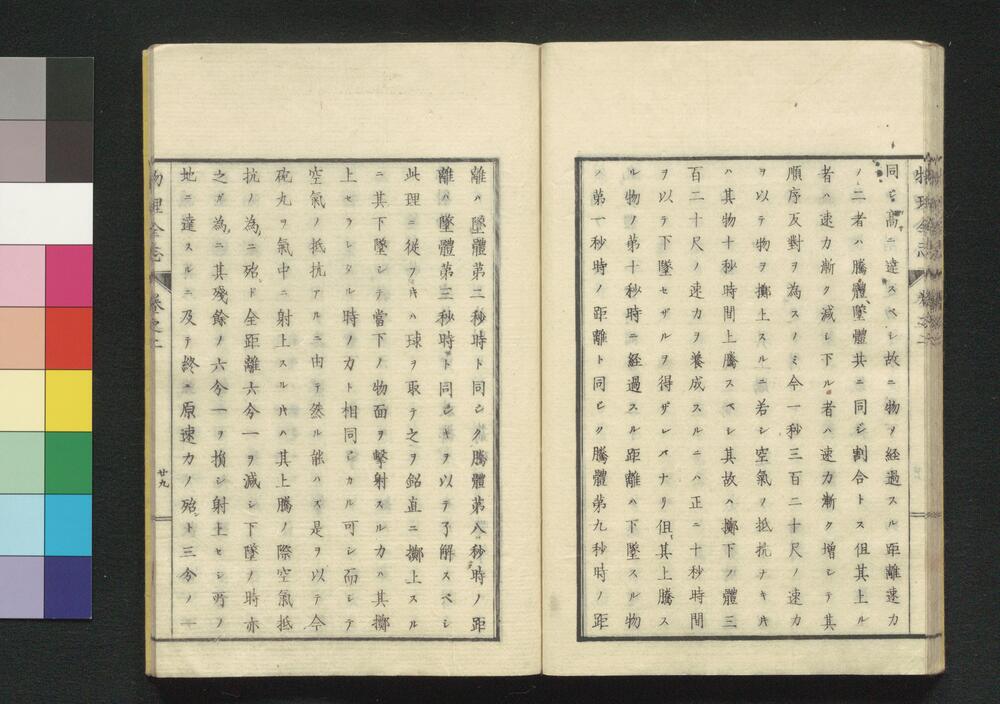 同シ高ニ達スベシ故ニ物ノ経過スル距離速力
ノ二者ハ騰體墜體共ニ同シ割合トス但其上ル
者ハ速力漸ク減シ下ル者ハ速力漸ク増シテ其
順序反對ヲ為スノミ今一秒三百二十尺ノ速力
ヲ以テ物ヲ擲上スルニ若シ空氣ノ抵抗ナキキ
ハ其物十秒時間上騰スベシ其故ハ擲下ノ體三
百二十尺ノ速力ヲ養成スルニハ正ニ十秒時間
ヲ以テ下墜セザルヲ得ザレバナリ但其上騰ス
ル物ノ第十秒時ニ経過スル距離ハ下墜スル物
ノ第一秒時ノ距離ト同シク騰體第九秒時ノ距
離ハ墜體第二秒時ト同シク騰體第八秒時ノ距
離ハ墜體第三秒時ト同シキヲ以テ了解スベシ
此理ニ従フキハ球ヲ取テ之ヲ鉛直ニ擲上スル
ニ其下墜シテ當下ノ物面ヲ撃射スル力ハ其擲
上セラレタル時ノ力ト相同シカル可シ而シテ
空氣ノ抵抗アルニ由テ然ル能ハズ是ヲ以テ今
砲丸ヲ氣中ニ射上スルキハ其上騰ノ際空氣抵
抗ノ為ニ殆ド全距離六分一ヲ減シ下墜ノ時亦
之ガ為ニ其殘餘ノ六分一ヲ損シ射上セシ所ノ
地ニ達スルニ及テ終ニ原速力ノ殆ト三分ノ一
物理全志
卷之二
廿九